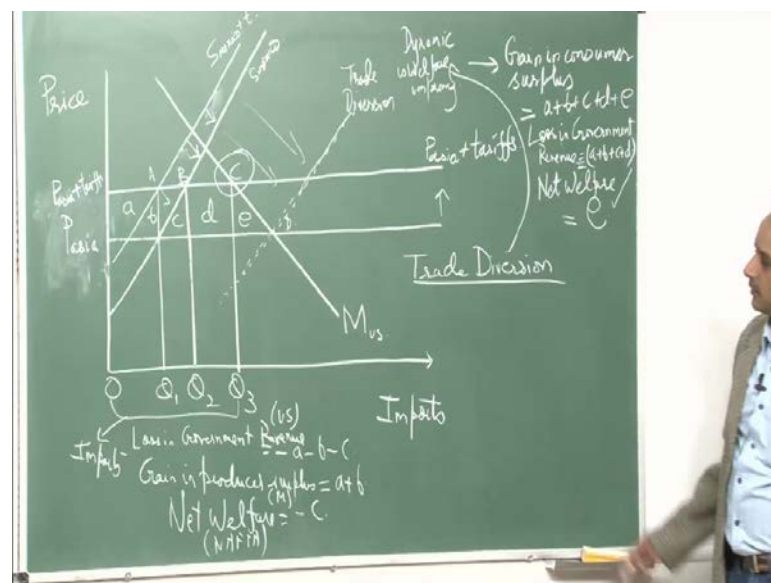 Price
S Mexico + t.
S Mexico
Trade
Diversion
Dynamic
welfare
improving
→ Gain in consumer
surplus
= a+b+c+d+e
Loss in Government
Revenue = (a+b+c+d)
Net Welfare
= e ✓
Pasia + tariffs
Pasia + tariffs
Pasia
A
B
C
a
b
c
d
e
Trade Diversion
M us.
O Q1 Q2 Q3
Imports
Imports
Loss in Government Revenue (US) = -a-b-c
Gain in producer surplus (M) = a+b
Net Welfare = -c.
(NAFTA)